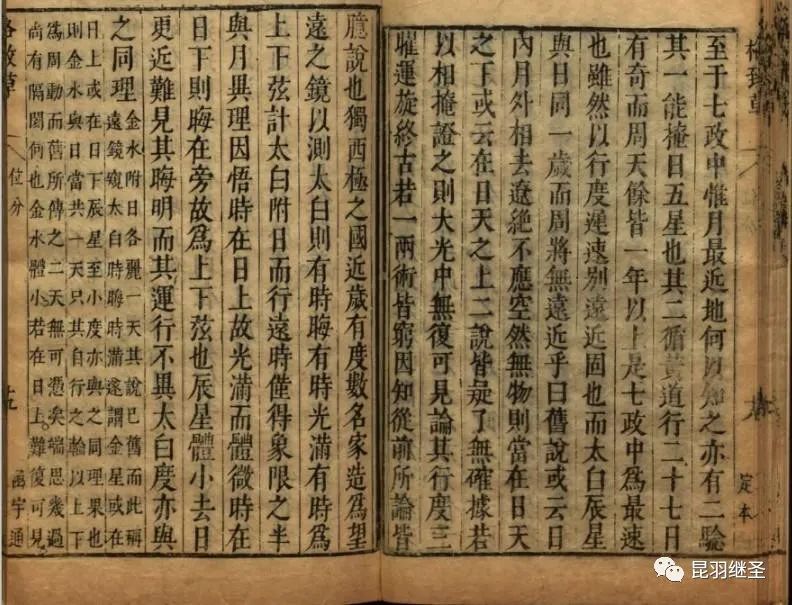 至于七政中惟月最近地何以知之亦有二驗
其一能掩日五星也其二循黃道行二十七日
有奇而周天餘皆一年以上是七政中為最速
也雖然以行度遲速別遠近固也而太白辰星
與日同一歲而周將無遠近乎曰舊說或云日
內月外相去遼絶不應空然無物則當在日天
之下或云在日天之上二說皆疑了無確據若
以相掩證之則大光中無復可見論其行度三
曜運旋終古若一兩術皆窮因知從前所論皆
臆說也獨西極之國近歲有度數名家造為望
遠之鏡以測太白則有時晦有時光滿有時為
上下弦計太白附日而行遠時僅得象限之半
與月異理因悟時在日上故光滿而體微時在
日下則晦在旁故為上下弦也辰星體小去日
更近難見其晦明而其運行不異太白度亦與
之同理
金水附日各麗一天其說已舊而此稱
遠鏡窺太白時晦時滿遂謂金星或在
日上或在日下辰星至小度亦與之同理果也
則金水與日當共一天只其自行之輪以上下
為周動而舊所傳之二天無可憑矣端思幾過
尚有隔閡何也金水體小若在日上難復可見
格致草
位分
函宇通
定本
昆羽继圣